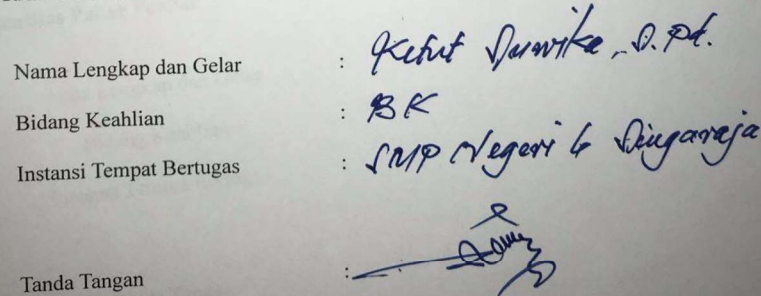 Nama Lengkap dan Gelar : Ketut Suwika, S.Pd.
Bidang Keahlian : BK
Instansi Tempat Bertugas : SMP Negeri 6 Singaraja
Tanda Tangan :